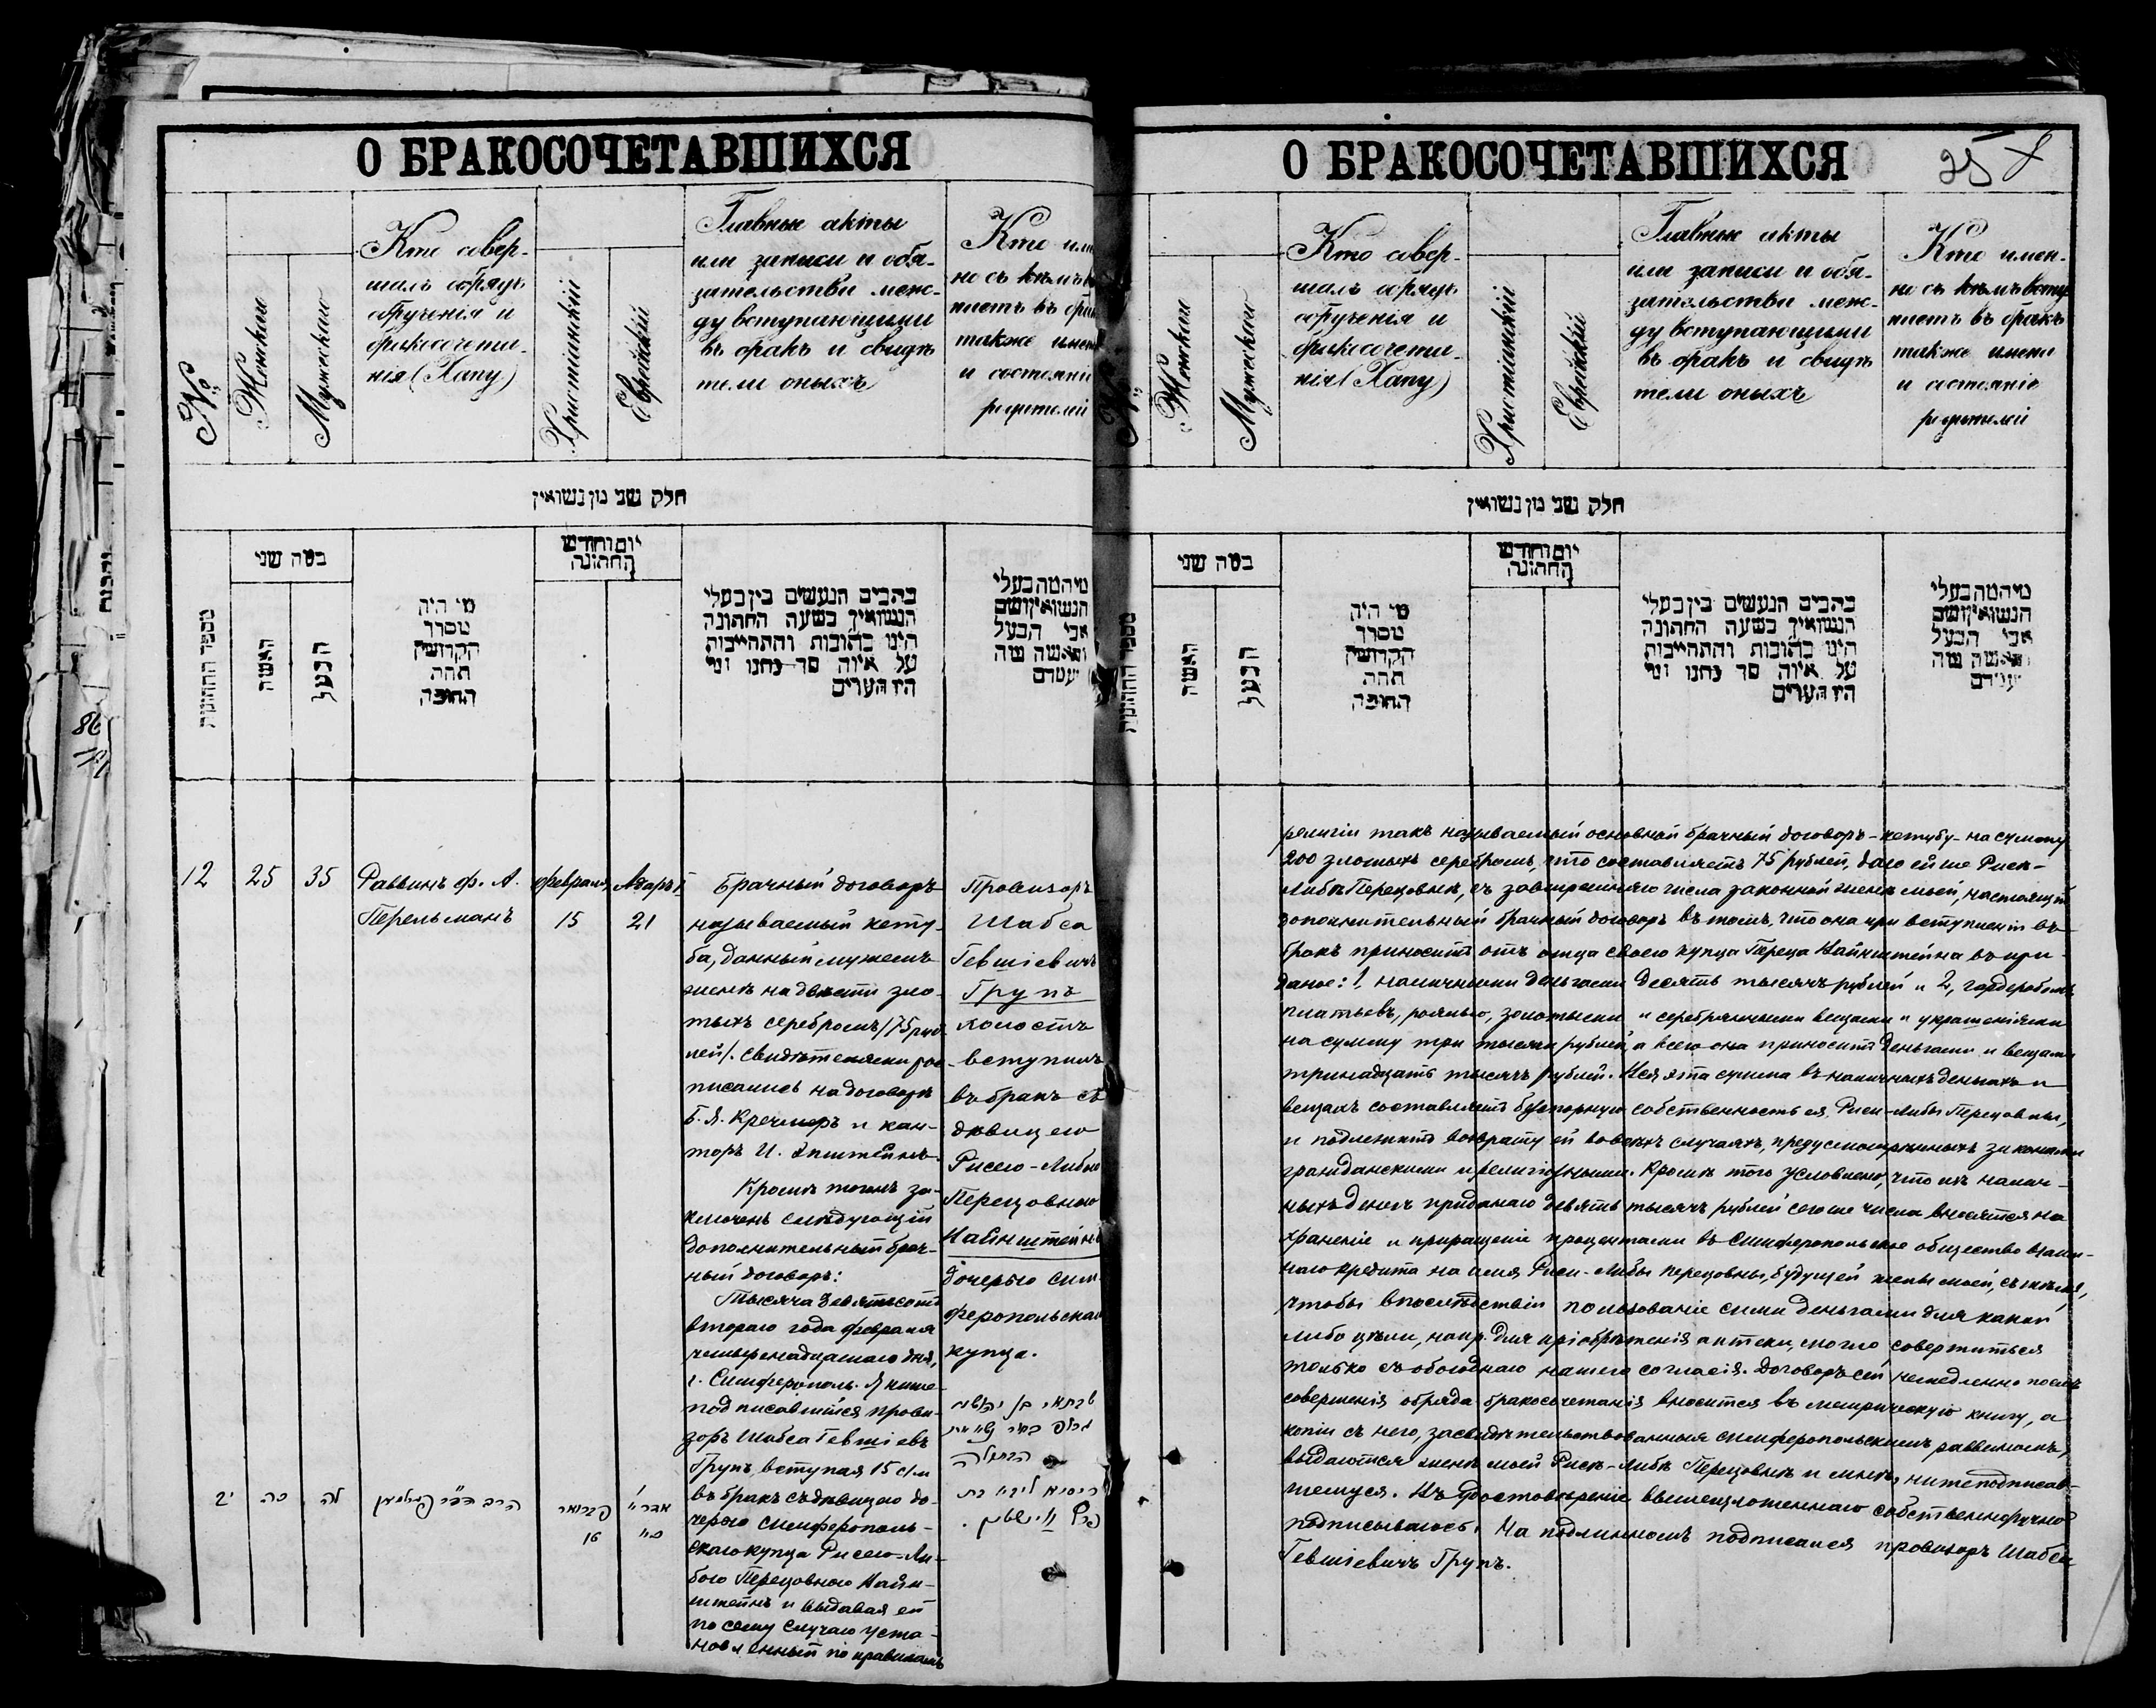 О БРАКОСОЧЕТАВШИХСЯ
№
Женскаго
Мужескаго
Кто совер-
шалъ обрядъ
обрученія и
бракосочета-
нія (Хапу)
Христіанскій
Еврейскій
Главные акты
или записи и обя-
зательства меж-
ду вступающими
въ бракъ и свидѣ
тели оныхъ
Кто имен
но съ кѣмъ в
паетъ въ бра
также имена
и состояніе
родителей
חלק שני מן נשואין
מספר החתונות
כמה שני
האשה
הבעל
מי היה
מסדר
הקדושין
תחת
החופה
יום וחודש
החתונה
כתבים הנעשים בין בעלי
הנשואין בשעה החתונה
היינו כתובות והתחייבות
על איזה סך נתנו ומי
היו העדים
מי המה בעלי
הנשואין ושם
אבי הבעל
והאשה ומה
מעמדם
86
12
25
35
Раввинъ Ф. А.
Перельманъ
февраля
15
Адаръ I
21
Брачный договоръ
называемый кету-
ба, данный мужемъ
женѣ на двѣсти зло-
тыхъ серебромъ /75 руб-
лей/. Свидѣтелями рос-
писались на договорѣ
Б. Я. Кречмеръ и кан-
торъ И. Эпштейнъ.
Кромѣ того за-
ключенъ слѣдующій
дополнительный брач-
ный договоръ:
Тысяча девятьсотъ
второго года февраля
четырнадцатаго дня,
г. Симферополь. Я ниже-
подписавшійся прови-
зоръ Шабса Гевшіевъ
Групъ, вступая 15 с/м
въ бракъ съ дѣвицею до-
черью симферополь-
скаго купца Рисею-Ли-
бою Перецовною Вайн-
штейнъ и выдавая ей
по сему случаю уста-
новленный по правиламъ
Провизоръ
Шабса
Гевшіевичъ
Групъ
холостъ
вступилъ
въ бракъ съ
дѣвицею
Рисею-Либою
Перецовною
Вайнштейнъ
дочерью сим-
феропольскаго
купца.
יב
כה
לה
אדר
16
О БРАКОСОЧЕТАВШИХСЯ
25
№
Женскаго
Мужескаго
Кто совер-
шалъ обрядъ
обрученія и
бракосочета-
нія (Хапу)
Христіанскій
Еврейскій
Главные акты
или записи и обя-
зательства меж-
ду вступающими
въ бракъ и свидѣ
тели оныхъ
Кто имен-
но съ кѣмъ всту
паетъ въ бракъ
также имена
и состояніе
родителей
חלק שני מן נשואין
מספר החתונות
כמה שני
האשה
הבעל
מי היה
מסדר
הקדושין
תחת
החופה
יום וחודש
החתונה
כתבים הנעשים בין בעלי
הנשואין בשעה החתונה
היינו כתובות והתחייבות
על איזה סך נתנו ומי
היו העדים
מי המה בעלי
הנשואין ושם
אבי הבעל
והאשה ומה
מעמדם
религіи такъ называемый основной брачный договоръ-кетубу-на сумму
200 злотыхъ серебромъ, что составляетъ 75 рублей, даю ей же Рисѣ-
Либѣ Перецовнѣ, съ завтрашняго числа законной женѣ моей, настоящій
дополнительный брачный договоръ въ томъ, что она при вступленіи въ
бракъ приноситъ отъ отца своего купца Переца Вайнштейна въ при-
даное: 1, наличными деньгами десять тысячъ рублей и 2, гардеробомъ
платьевъ, роялью, золотыми и серебряными вещами и украшеніями
на сумму три тысячи рублей, а всего она приноситъ деньгами и вещами
тринадцать тысячъ рублей. Вся эта сумма въ наличныхъ деньгахъ и
вещахъ составляетъ безспорную собственность ея, Риси-Либы Перецовны,
и подлежитъ возврату ей во всѣхъ случаяхъ, предусмотрѣнныхъ законами
гражданскими и религіозными. Кромѣ того условлено, что изъ налич-
ныхъ денегъ приданаго девять тысячъ рублей сего же числа вносятся на
храненіе и приращеніе процентами въ Симферопольское общество взаим-
наго кредита на имя Риси-Либы Перецовны, будущей жены моей, съ тѣмъ,
чтобы впослѣдствіи пользованіе сими деньгами для какой
либо цѣли, напр. для пріобрѣтенія аптеки, могло совершиться
только съ обоюднаго нашего согласія. Договоръ сей немедленно послѣ
совершенія обряда бракосочетанія вносится въ метрическую книгу, а
копіи съ него, засвидѣтельствованныя симферопольскимъ раввиномъ,
выдаются женѣ моей Рисѣ-Либѣ Перецовнѣ и мнѣ, нижеподписав-
шемуся. Въ удостовѣреніе вышеизложеннаго собственноручно
подписываюсь. На подлинномъ подписался провизоръ Шабса
Гевшіевичъ Групъ.